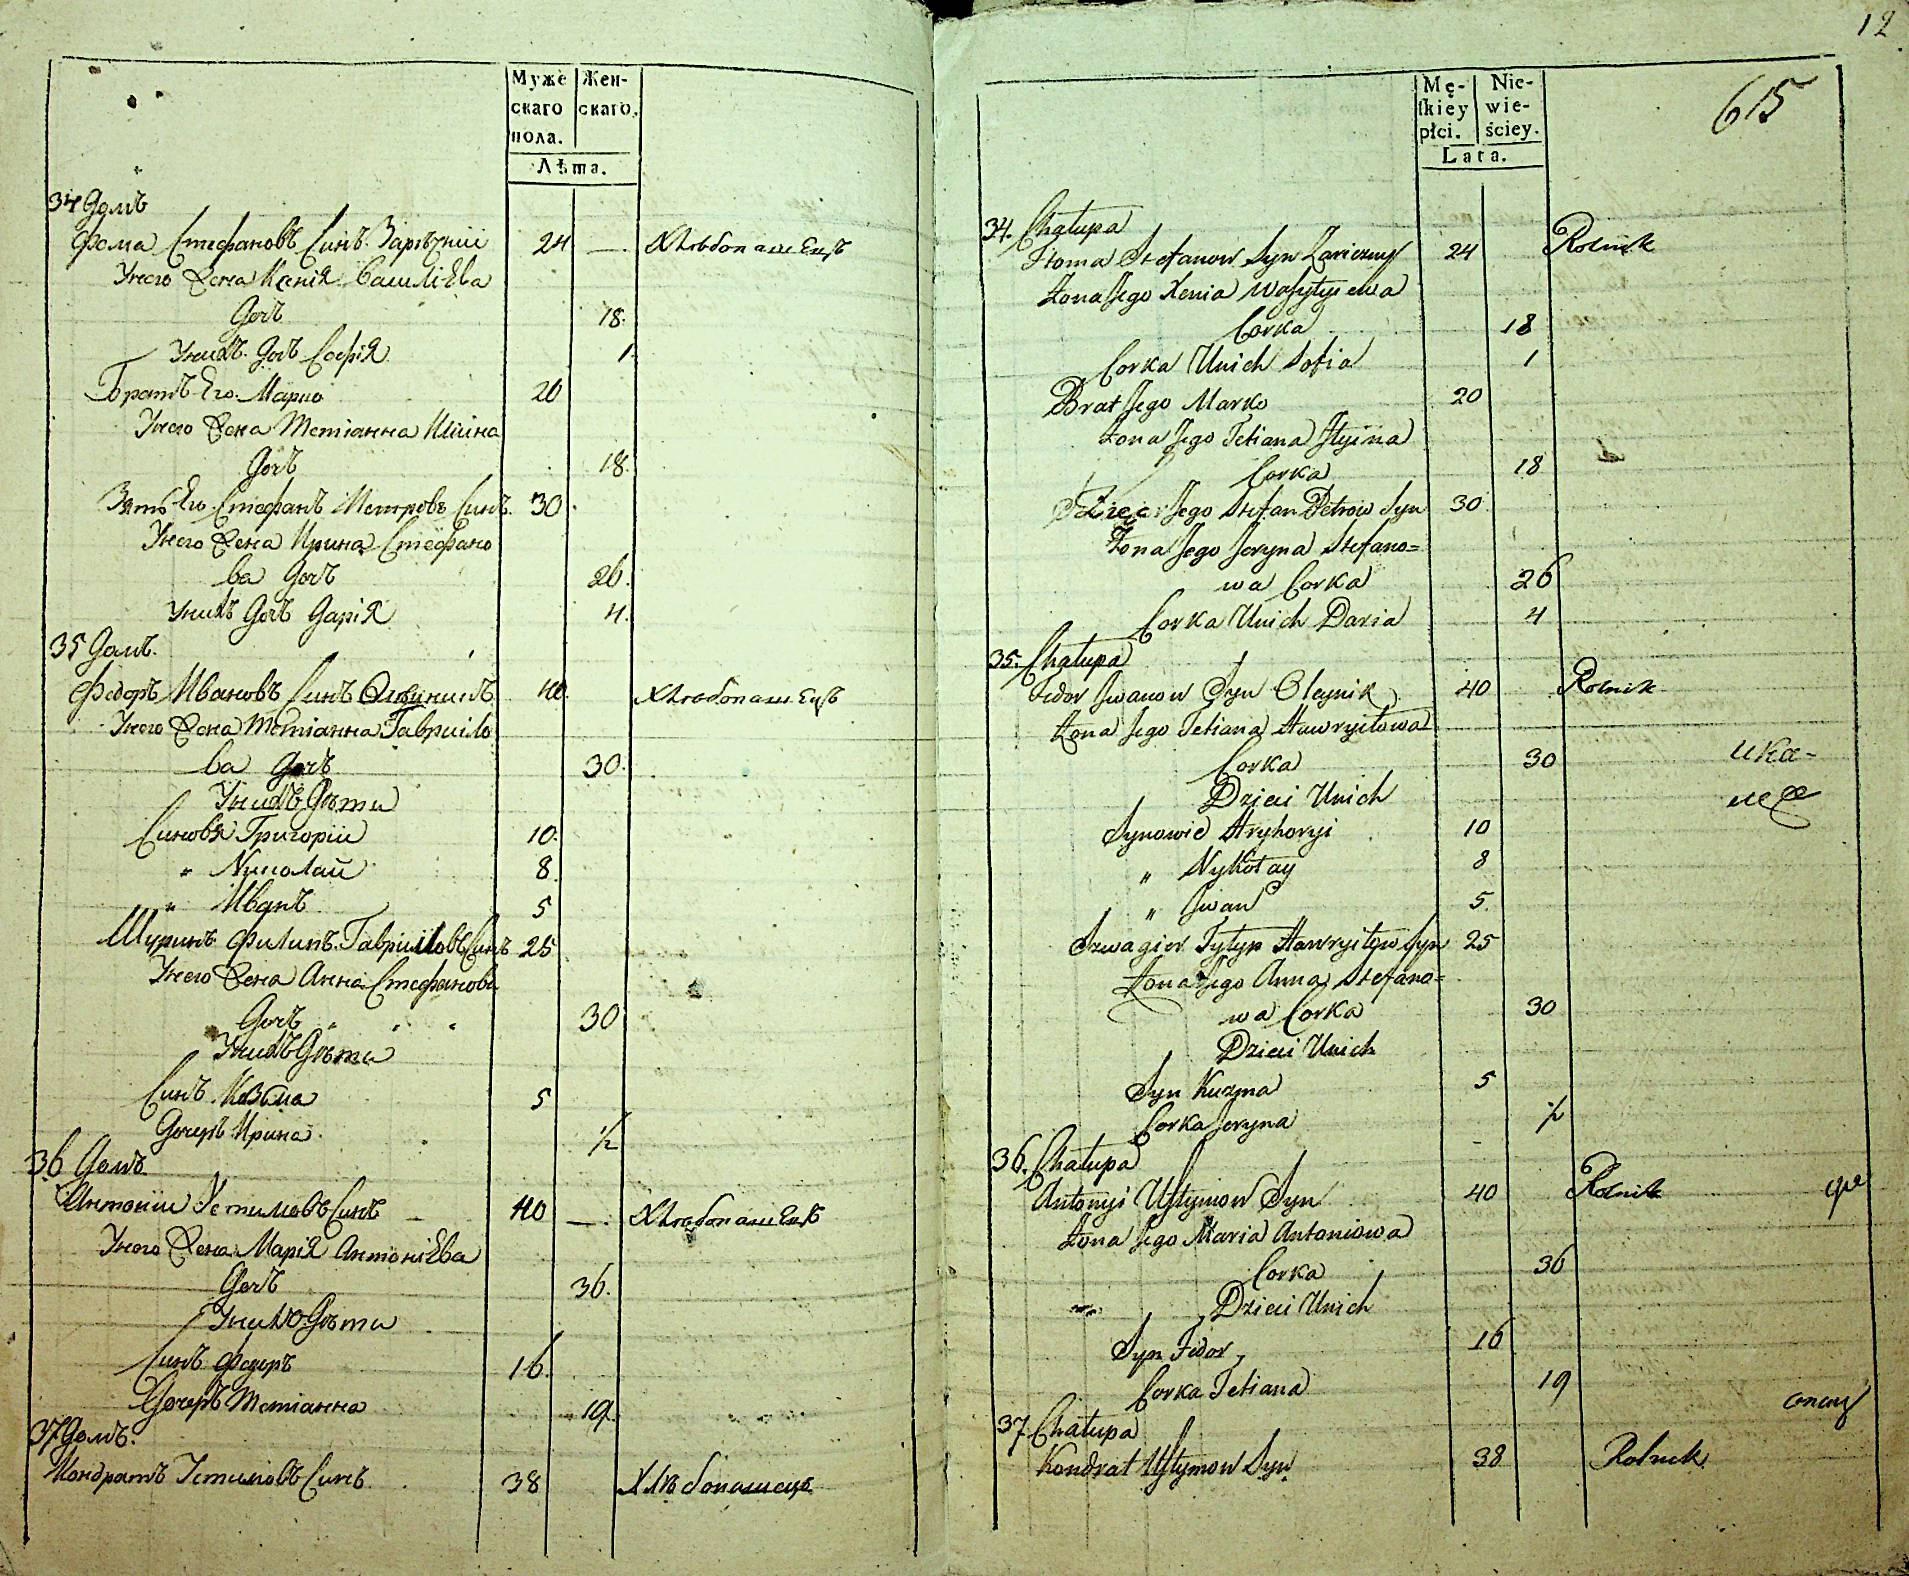 Муже Жен-
скаго скаго,
пола.
Лѣта.
34 Домъ
Фома Стефановъ Синъ Зарѣчній 24 — Хлѣбопашецъ
Унего Жена Ксенія Василіева
Дочъ 18.
Унихъ Дочъ Софія 1.
Братъ Его Марко 20
Унего Жена Тетіанна Иліина
Дочъ 18.
Зять Его Стефанъ Петровъ Синъ 30.
Унего Жена Ирина Стефано
ва Дочъ 26.
Унихъ Дочъ Дарія 4.
35 Домъ.
Федоръ Ивановъ Синъ Олейникъ 40. Хлѣбопашецъ
Унего Жена Тетіанна Гавриіло
ва Дочъ 30.
Унихъ Дѣти
Синовя Григорій 10.
„ Николай 8.
„ Иванъ 5
Шуринъ Филипъ Гавриіловъ Синъ 25
Унего Жена Анна Стефанова
Дочъ 30
Унихъ Дѣти
Синъ Козьма 5
Дочеръ Ирина ½
36 Домъ
Антоній Устимовъ Синъ 40 — Хлѣбопашецъ
Унего Жена Марія Антоніева
Дочъ 36.
Унихъ Дѣти
Синъ Федоръ 16.
Дочеръ Тетіанна 19.
37 Домъ.
Кондратъ Устимовъ Синъ 38 Хлѣбопашецъ
12
615
Mę- Nie-
ſkiey wie-
płci. ściey.
Lata.
34. Chałupa
Homa Stefanow Syn Zariczny 24 Rolnik
Żona Jego Xenia Wasylyiewa
Corka 18
Corka Unich Sofia 1
Brat Jego Marko 20
Żona Jego Tetiana Jlyina
Corka 18
Zięć Jego Stefan Petrow Syn 30
Żona Jego Jeryna Stefano=
wa Corka 26
Corka Unich Daria 4
35. Chałupa
Fedor Jwanow Syn Oleynik 40 Rolnik
Żona Jego Tetiana Hawryiłowa
Corka 30
Dzieci Unich
Synowie Hryhoryi 10
„ Nykołay 8
„ Jwan 5
Szwagier Fyłyp Hawryiłow Syn 25
Żona Jego Anna Stefano=
wa Corka 30
Dzieci Unich
Syn Kuzma 5
Corka Jeryna ½
36. Chałupa
Antonyi Ustymow Syn 40 Rolnik
Żona Jego Maria Antoniowa
Corka 36
Dzieci Unich
Syn Fedor 16
Corka Tetiana 19
37 Chałupa
Kondrat Ustymow Syn 38 Rolnik